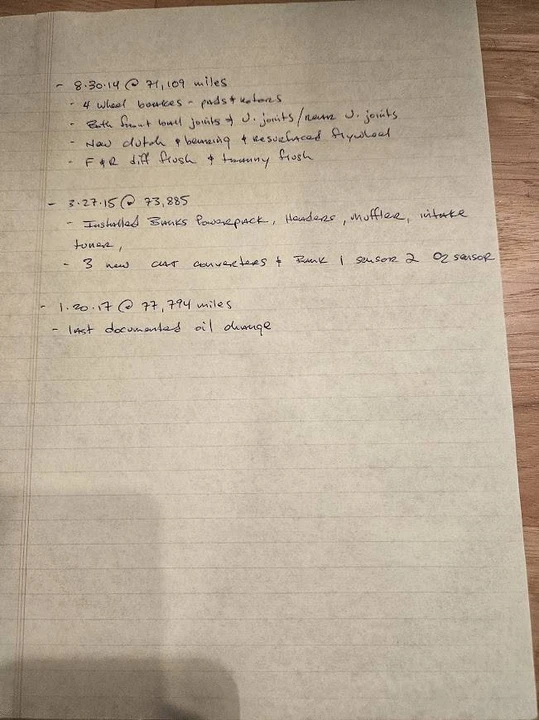 - 8.30.14 @ 71,109 miles
- 4 wheel brakes - pads & rotors
- Both front ball joints & U. joints / rear U. joints
- New clutch & bearing & resurfaced flywheel
- F & R diff flush & tranny flush
- 3.27.15 @ 73,885
- Installed Banks Powerpack, Headers, muffler, intake
tuner,
- 3 new CAT converters & Bank 1 sensor 2 O2 sensor
- 1.20.17 @ 77,794 miles
- last documented oil change